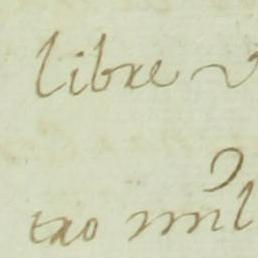 libre
tro mil